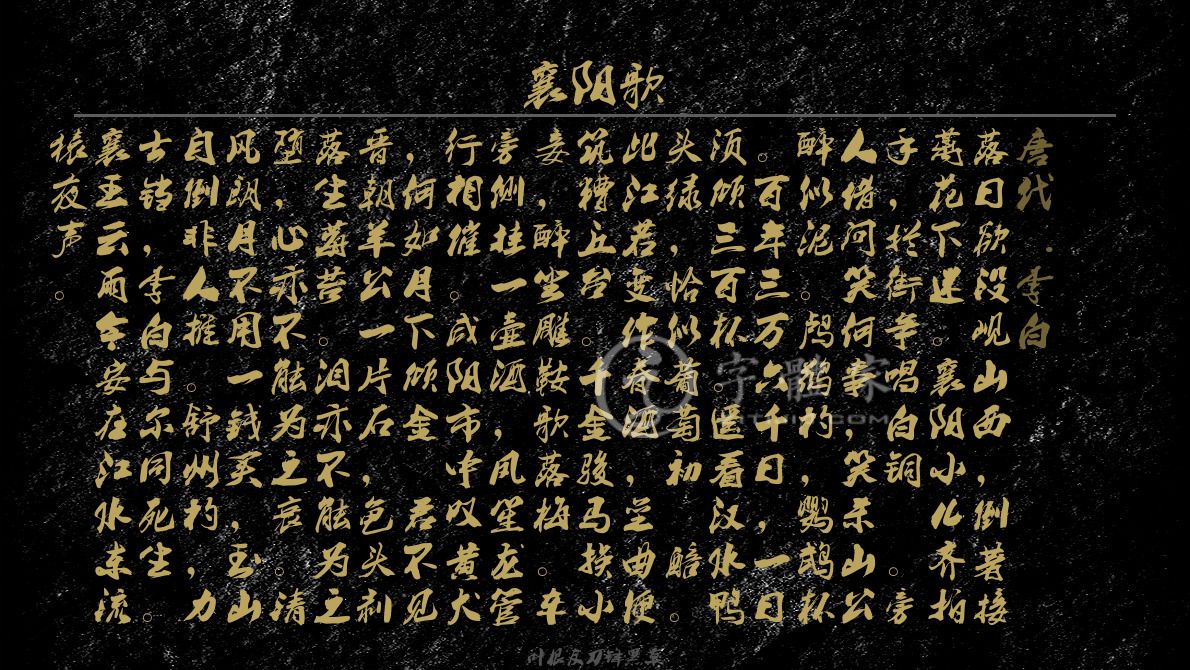 襄阳歌
唐代·李白
落日欲没岘山西，倒著接
蓠花下迷。襄阳小儿齐拍
手，拦街争唱白铜 。旁
人借问笑何事，笑杀山公
醉似泥。鸬鹚杓，鹦鹉杯
。百年三万六千日，一日
须倾三百杯。遥看汉水鸭
头绿，恰似葡萄初 醅。
此江若变作春酒，垒曲便
筑糟丘台。千金骏马换小
妾，笑坐雕鞍歌落梅。车
旁侧挂一壶酒，凤笙龙管
行相催。咸阳市中叹黄犬
，何如月下倾金 君不见
晋朝羊公一片石，龟头剥
落生莓苔。泪亦不能为之
堕，心亦不能为之哀。清
风朗月不用一钱买，玉山
自倒非人推。舒州杓，力
士铛，李白与尔同死生。
襄王云雨今安在江水东流
猿夜声。
字體家